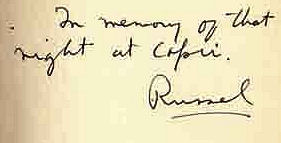 In memory of that
night at Capri.
Russel